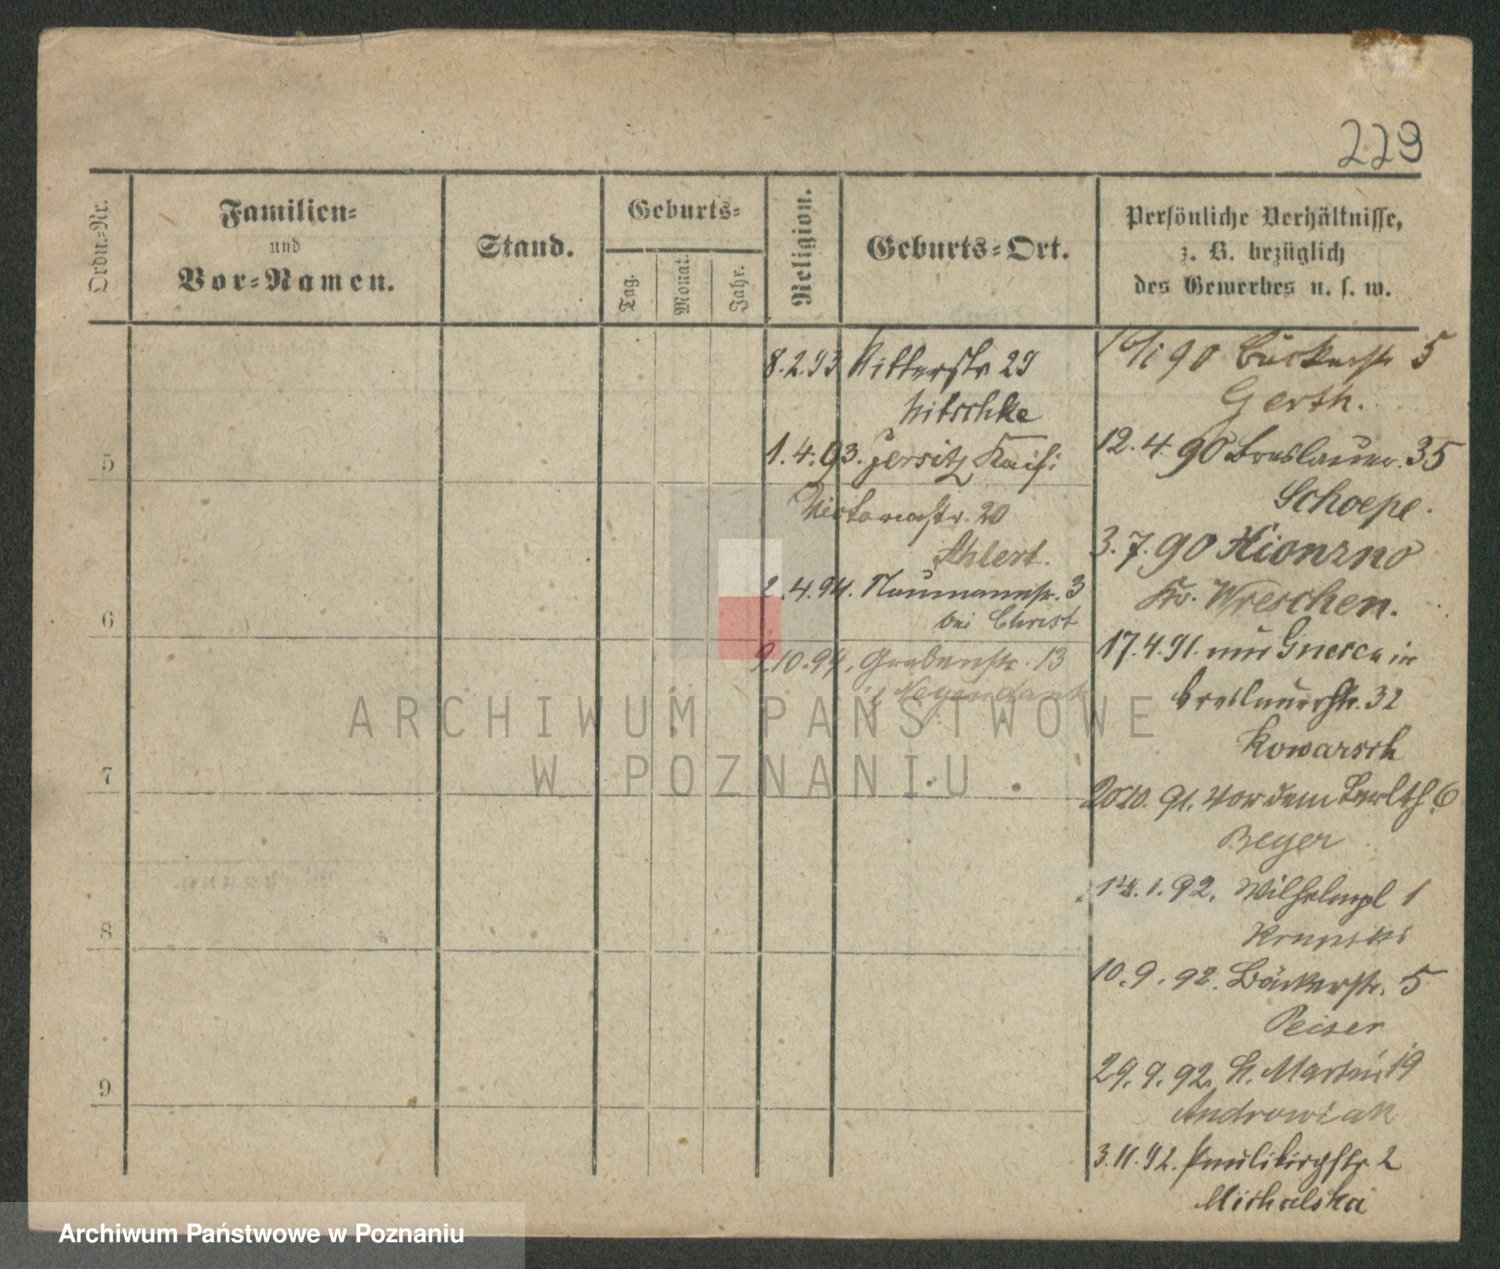 229
Ordn.-Nr.
Familien-
und
Vor-Namen.
Stand.
Geburts-
Tag.
Monat.
Jahr.
Religion.
Geburts-Ort.
Persönliche Verhältnisse,
z. B. bezüglich
des Gewerbes u. s. w.
5
6
7
8
9
8.2.93 Ritterstr 29
Nitschke
1.4.93. Jersitz Kaisi
Victoriastr. 20
Ahlert.
2.4.94. Naumannstr. 3
bei Christ
9.10.94. Grabenstr. 13
Negendank
90 Bäckerstr 5
Gerth.
12.4.90 Breslauer. 35
Schoepe.
3.7.90
Kr. Wreschen.
17.4.91. aus Gnesen in
Breslauerstr. 32
Kowarsch
91. Vor dem Berl th 6
Beyer
1.92. Wilhelmpl 1
Krupski
10.9.92. Bäckerstr. 5
Peiser
29.9.92. St. Martin 19
Androwiak
3.11.92. Paulikirchstr. 2
Michalska
ARCHIWUM PAŃSTWOWE
W POZNANIU
Archiwum Państwowe w Poznaniu